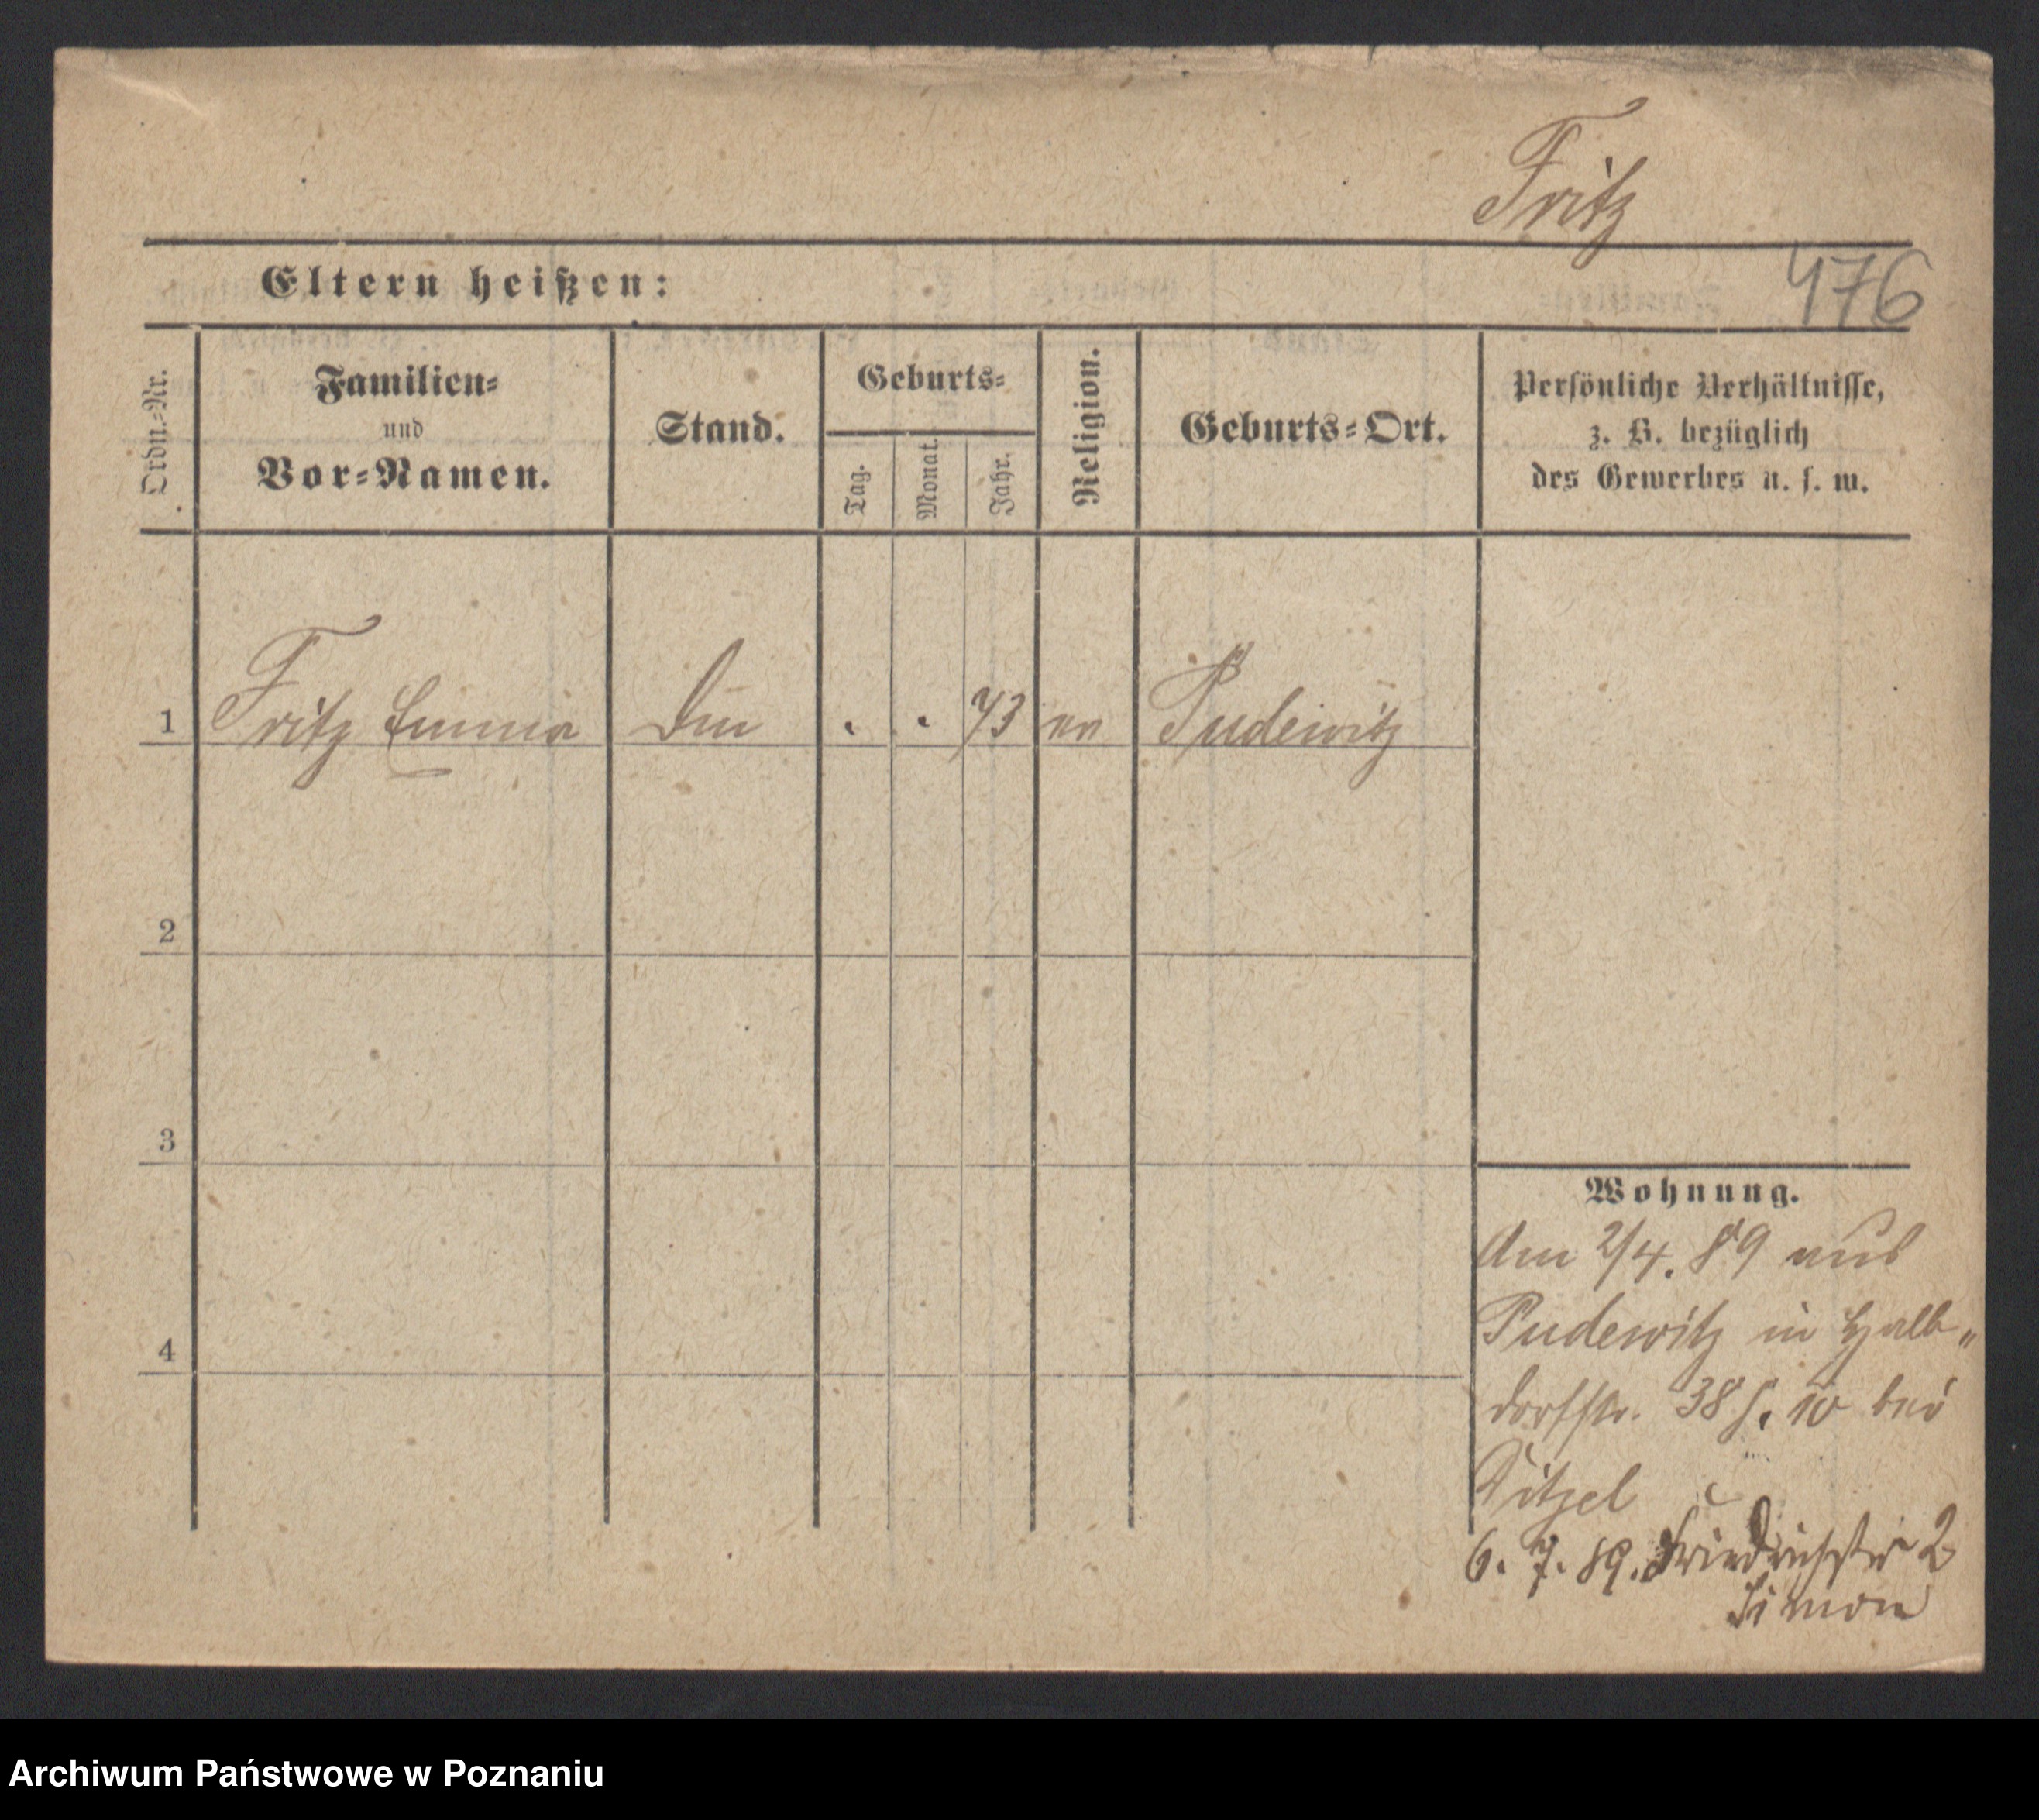 Fritz
476
Eltern heißen:
Ordn.-Nr.
Familien-
und
Vor-Namen.
Stand.
Geburts-
Tag.
Monat.
Jahr.
Religion.
Geburts-Ort.
Persönliche Verhältnisse,
z. B. bezüglich
des Gewerbes u. s. w.
1 Fritz Emma 73 Pudewitz
2
3
4
Wohnung.
Am 2/4. 89 aus
Pudewitz in Halb„
dorfstr. 38 10 bei
6. 7. 89. Friedrichstr 2
Simon
Archiwum Państwowe w Poznaniu